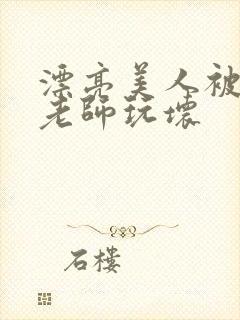 漂亮美人被
老師玩壞
石樓